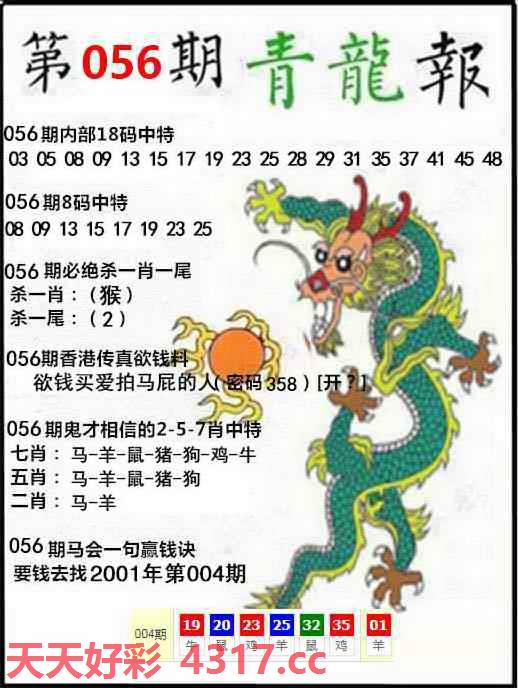 第056期 青龍報
056期内部18码中特
03 05 08 09 13 15 17 19 23 25 28 29 31 35 37 41 45 48
056期8码中特
08 09 13 15 17 19 23 25
056期必绝杀一肖一尾
杀一肖：（猴）
杀一尾：（2）
056期香港传真欲钱料
欲钱买爱拍马屁的人(密码358)[开?]
056期鬼才相信的2-5-7肖中特
七肖：马-羊-鼠-猪-狗-鸡-牛
五肖：马-羊-鼠-猪-狗
二肖：马-羊
056期马会一句赢钱诀
要钱去找2001年第004期
004期 19 20 23 25 32 35 01
牛 鼠 鸡 羊 鼠 鸡 羊
天天好彩 4317.cc